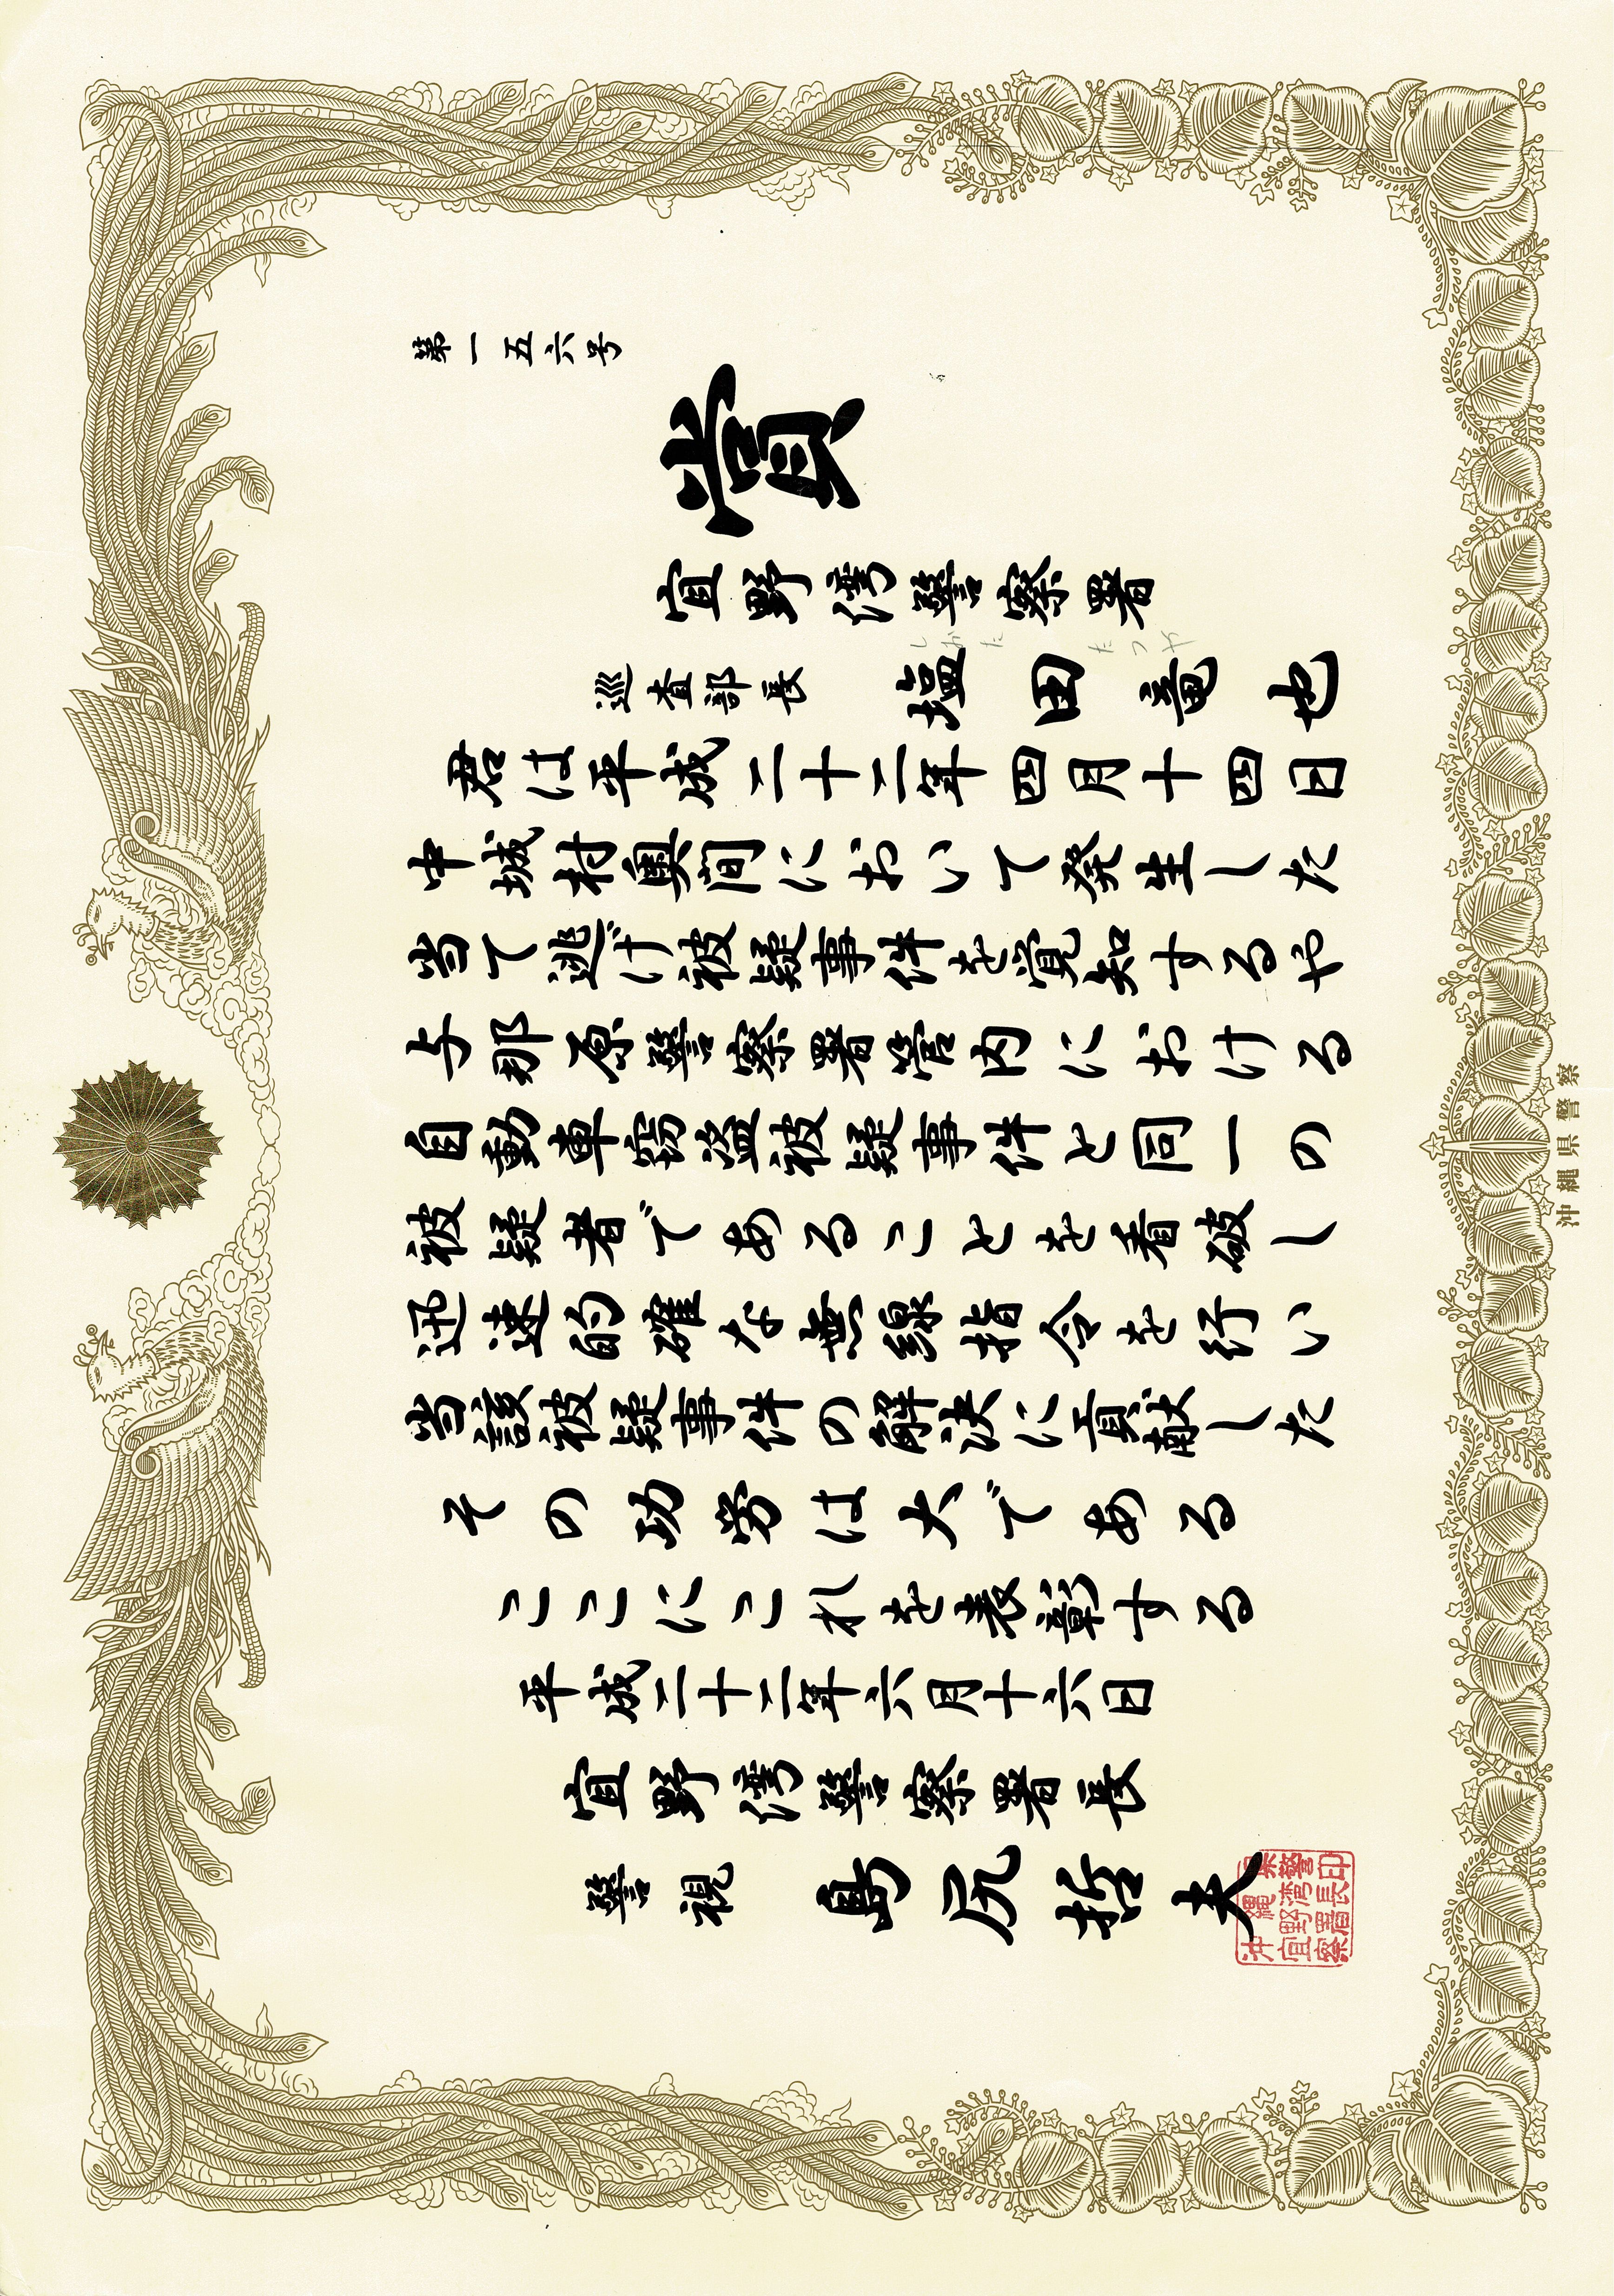 第一五六号
賞
宜野湾警察署
しおだ たつや
巡査部長 塩田竜也
君は平成二十二年四月十四日
中城村奥間において発生した
当て逃げ被疑事件を覚知するや
与那原警察署管内における
自動車窃盗被疑事件と同一の
被疑者であることを看破し
迅速的確な無線指令を行い
当該被疑事件の解決に貢献した
その功労は大である
ここにこれを表彰する
平成二十二年六月十六日
宜野湾警察署長
警視 島尻哲夫
沖縄県警察